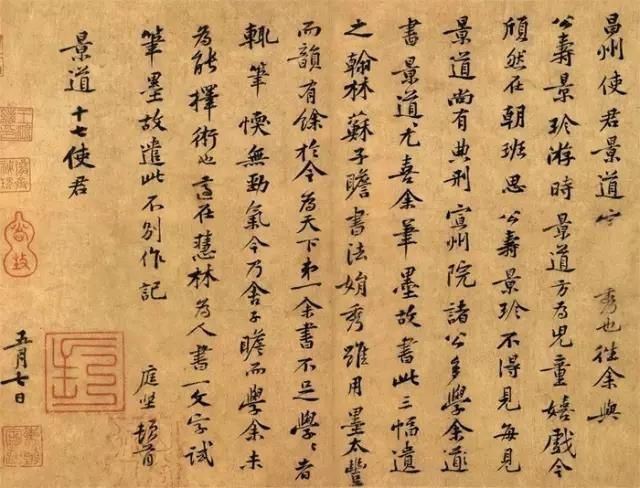 昌州使君景道 秀也往余與
公壽景珎游時景道方為兒童嬉戲今
頎然在朝班思公壽景珎不得見每見
景道尚有典刑宣州院諸公多學余
書景道尤喜余筆墨故書此三幅遺
之翰林蘇子瞻書法娟秀雖用墨太豐
而韻有餘於今為天下第一余書不足學〻者
輒筆愞無勁氣今乃舍子瞻而學余未
為能擇術也適在慧林為人書一文字試
筆墨故遣此不別作記 庭堅頓首
景道十七使君
五月七日